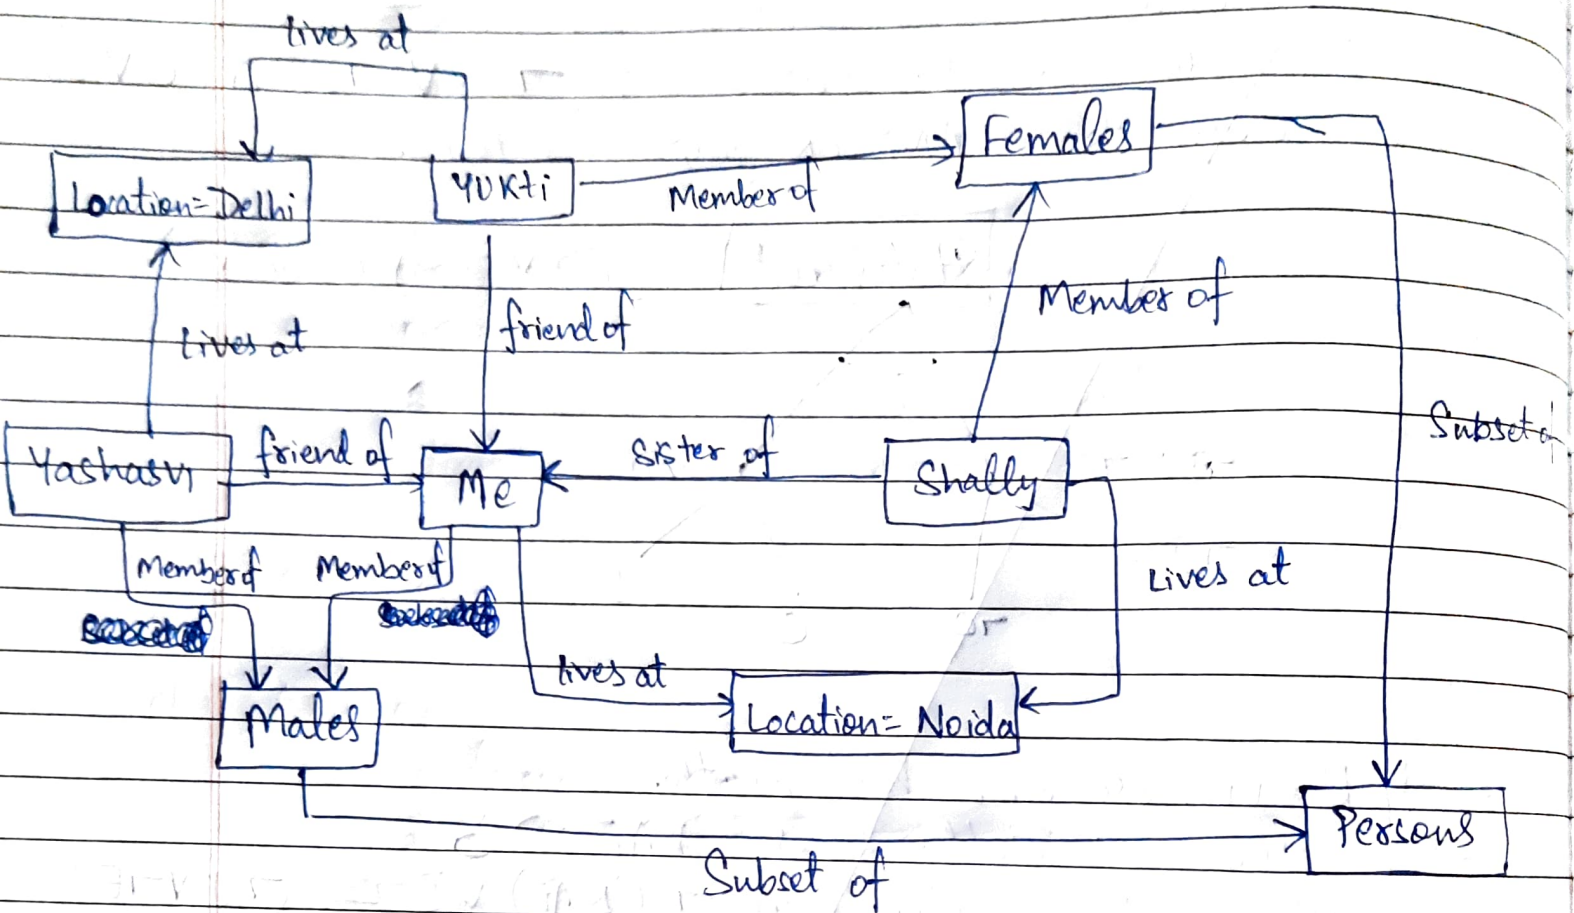 lives at
Females
Location=Delhi
YUKti
Member of
Member of
friend of
lives at
Subset
Yashasvi
friend of
Me
Sister of
Shally
Member of
Member of
Lives at
lives at
Males
Location= Noida
Persons
Subset of